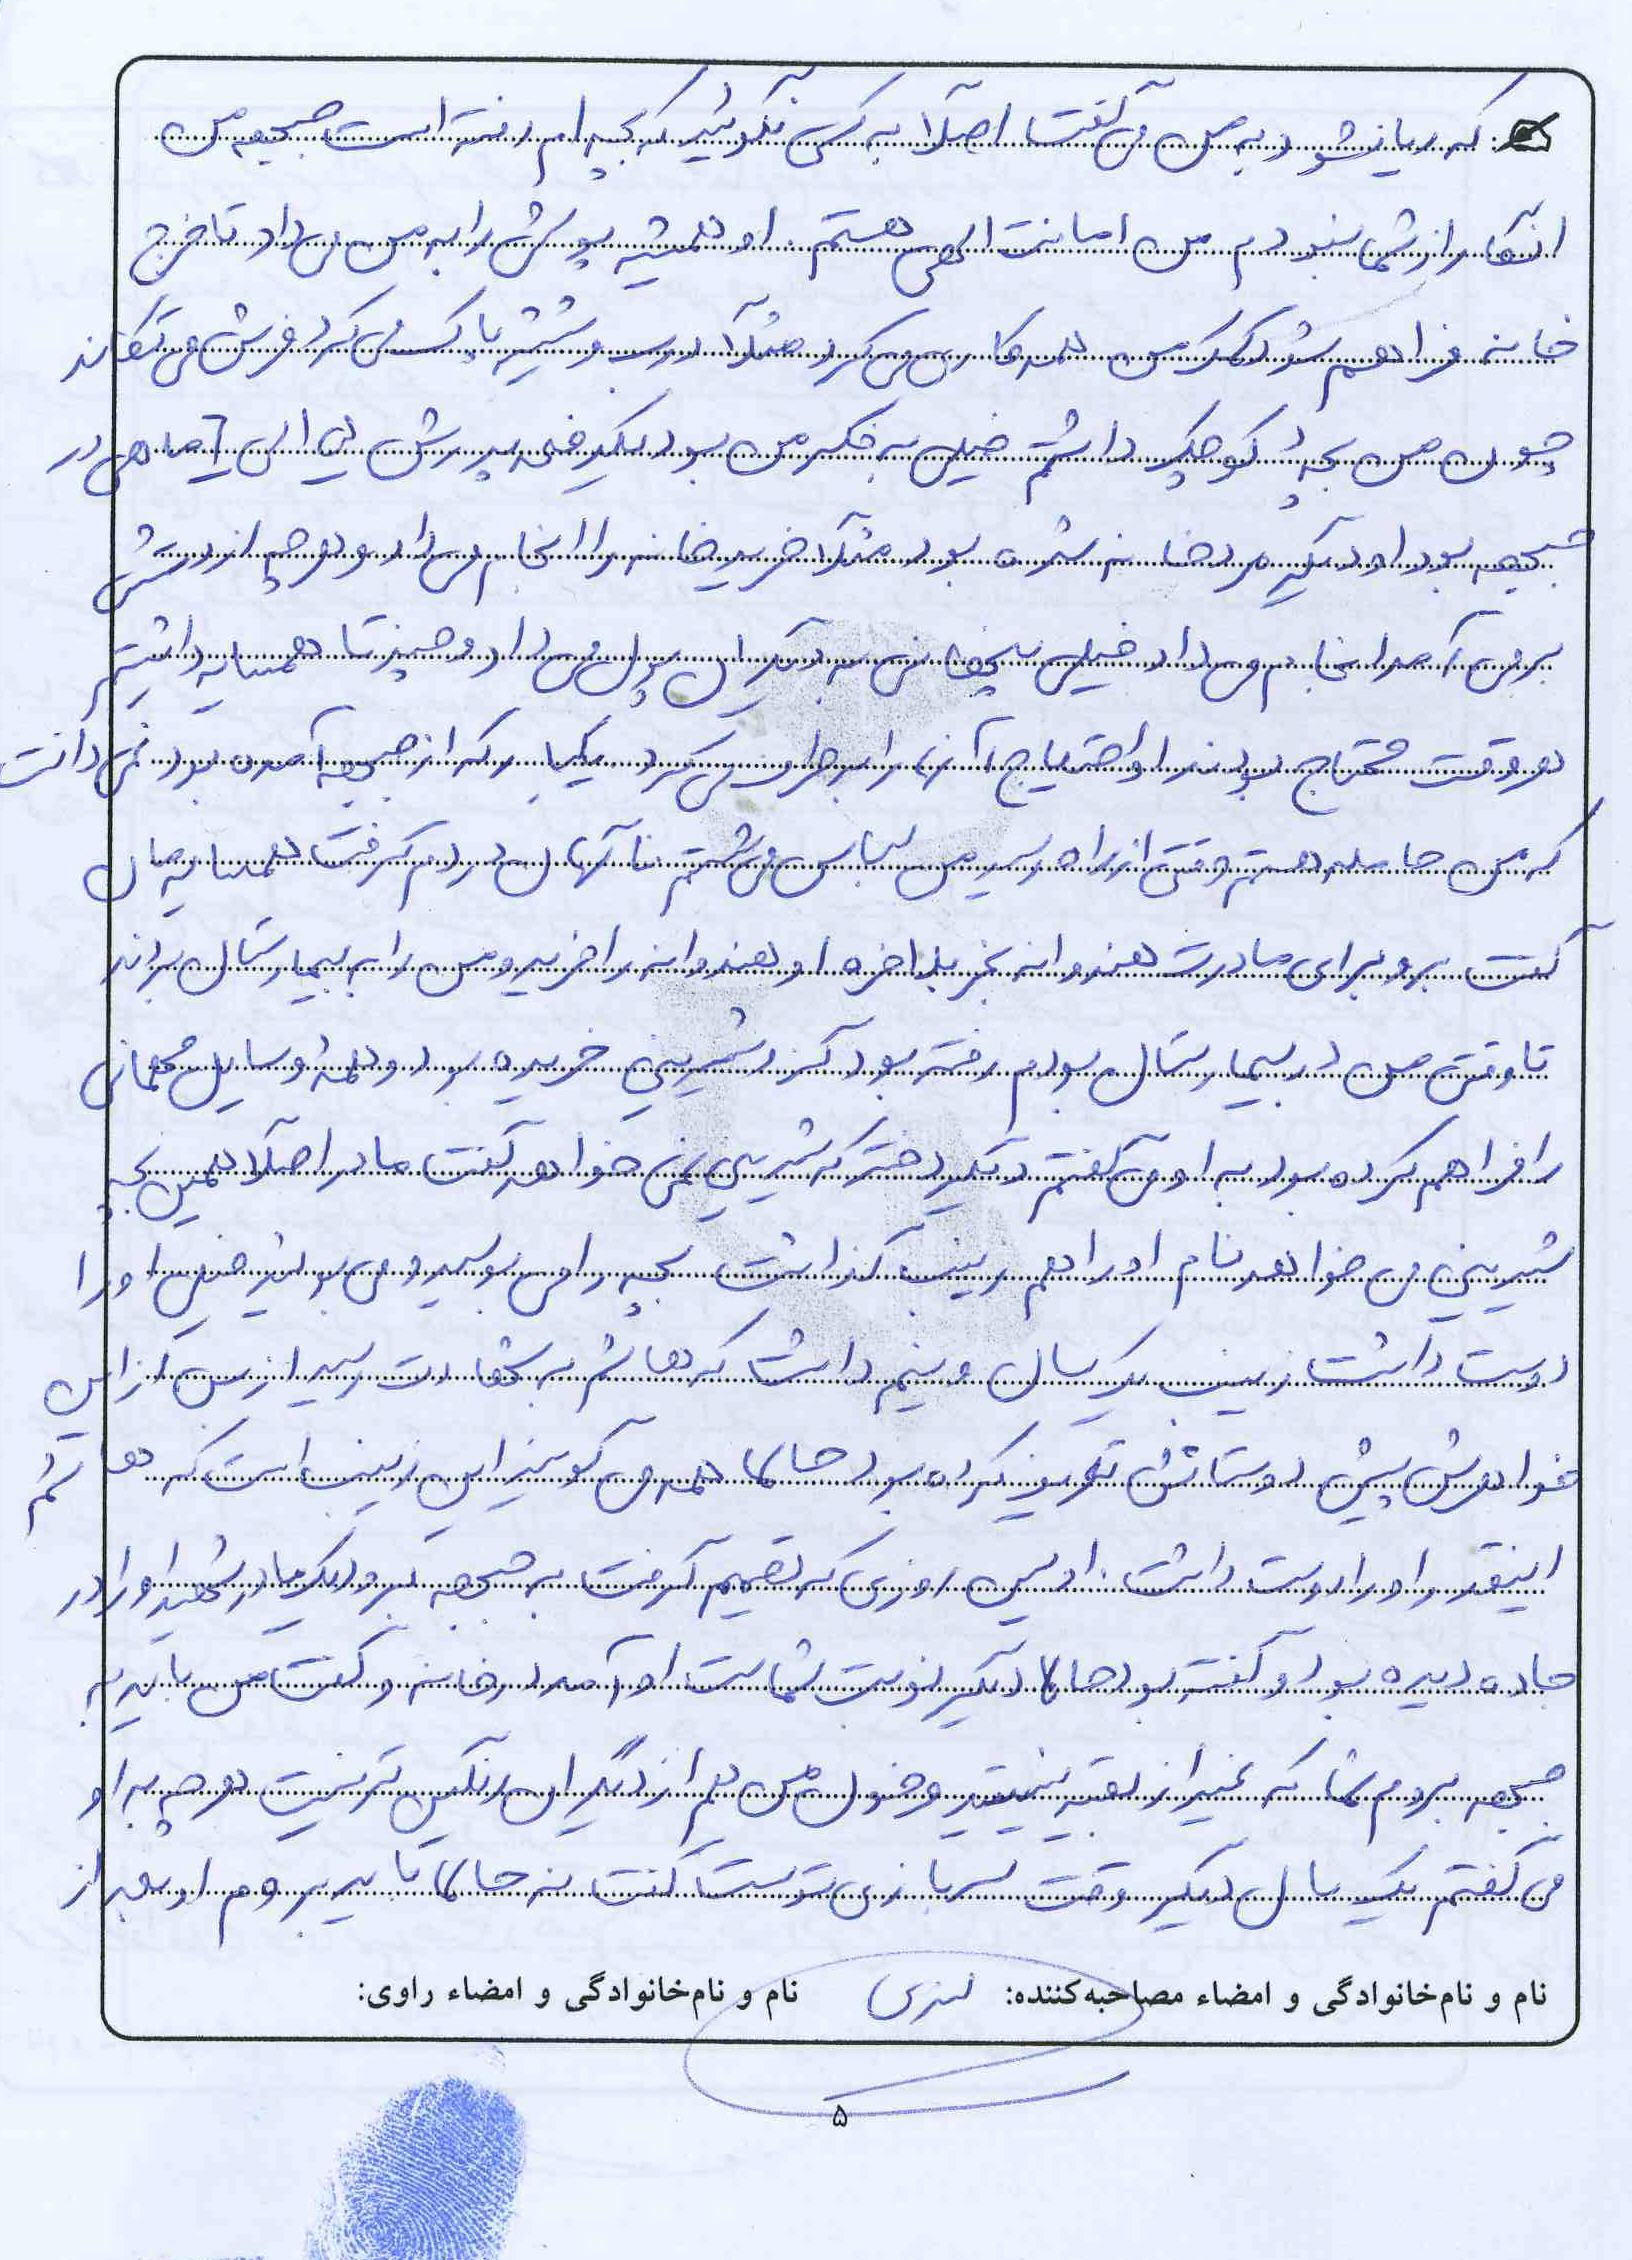 که ریا نشود به من می‌گفت اصلاً به کسی نگوئید که بچه‌ام رفته است جبهه من
انگار از شما نبودم من امانت الهی هستم. او همیشه پولش را به من می‌داد تا خرج
خانه فراهم شود کمک من همه کاری می‌کرد مثلاً درب و شیشه پاک می‌کرد فرش می‌تکاند
چون من بچهٔ کوچک داشتم خیلی به فکر من بود یکدفعه پدرش الی ۶ ماهی در
جبهه بود او دیگر مرد خانه شده بود مثلاً خرید خانه را انجام می‌داد و هر چه از دستش
بر می‌آمد انجام می‌داد خیلی پنهانی به دیگران پول می‌داد و چند تا همسایه داشتیم
هر وقت محتاج بودند او احتیاج آنها را برطرف می‌کرد یکبار که از جبهه آمده بود نمی‌دانست
که من حامله هستم وقتی از راه رسید من لباس می‌شستم ناگهان دردم گرفت همسایه‌مان
گفت برو برای مادرت هندوانه بخر بلاخره او هندوانه را خرید و من را به بیمارستان بردند
تا وقتی من در بیمارستان بودم رفته بود گز و شیرینی خریده بود و همهٔ وسایل مهمانی
را فراهم کرده بود به او می‌گفتم دیگر دختر که شیرینی نمی‌خواهد گفت مادر اصلاً همین بچه
شیرینی می‌خواهد نام او را هم زینب گذاشت بچه را می‌بوسید و می‌بوئید خیلی او را
دوست داشت زینب یک سال و نیم داشت که هاشم به شهادت رسید از بس از این
خواهرش پیش دوستانش تعریف کرده بود حالا همه می‌گویند این زینب است که هاشم
اینقدر او را دوست داشت. اولین روزی که تصمیم گرفت به جبهه برود یک مادر شهید او را در
جاده دیده بود و گفته بود حالا دیگر نوبت شماست او آمد در خانه و گفت من باید به
جبهه بروم شما که غیر از بقیه نیستید و خون من هم از دیگران رنگین‌تر نیست هر چه به او
می‌گفتم یک سال دیگر وقت سربازی توست گفت نه حالا باید بروم او بعد از
نام و نام‌خانوادگی و امضاء مصاحبه‌کننده: نام و نام‌خانوادگی و امضاء راوی:
۵